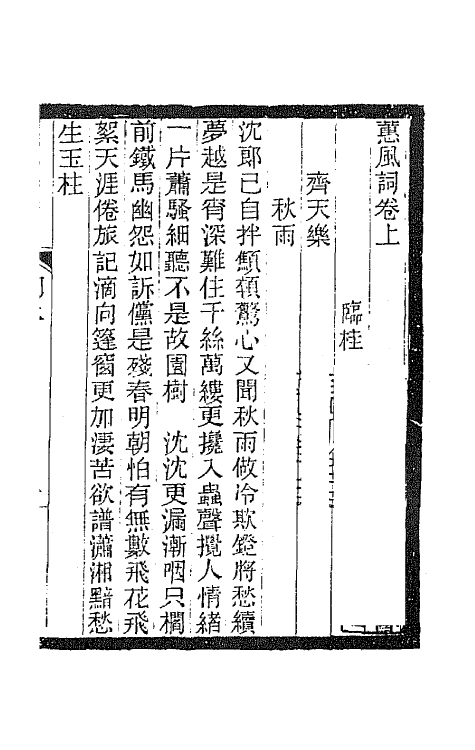 蕙風詞卷上
臨桂
齊天樂
秋雨
沈郎已自拌顦顇驚心又聞秋雨做冷欺鐙將愁續
夢越是宵深難住千絲萬縷更攙入蟲聲攪人情緒
一片蕭騷細聽不是故園樹　沈沈更漏漸咽只櫩
前鐵馬幽怨如訴儻是殘春明朝怕有無數飛花飛
絮天涯倦旅記滴向篷窗更加淒苦欲譜瀟湘黯愁
生玉柱